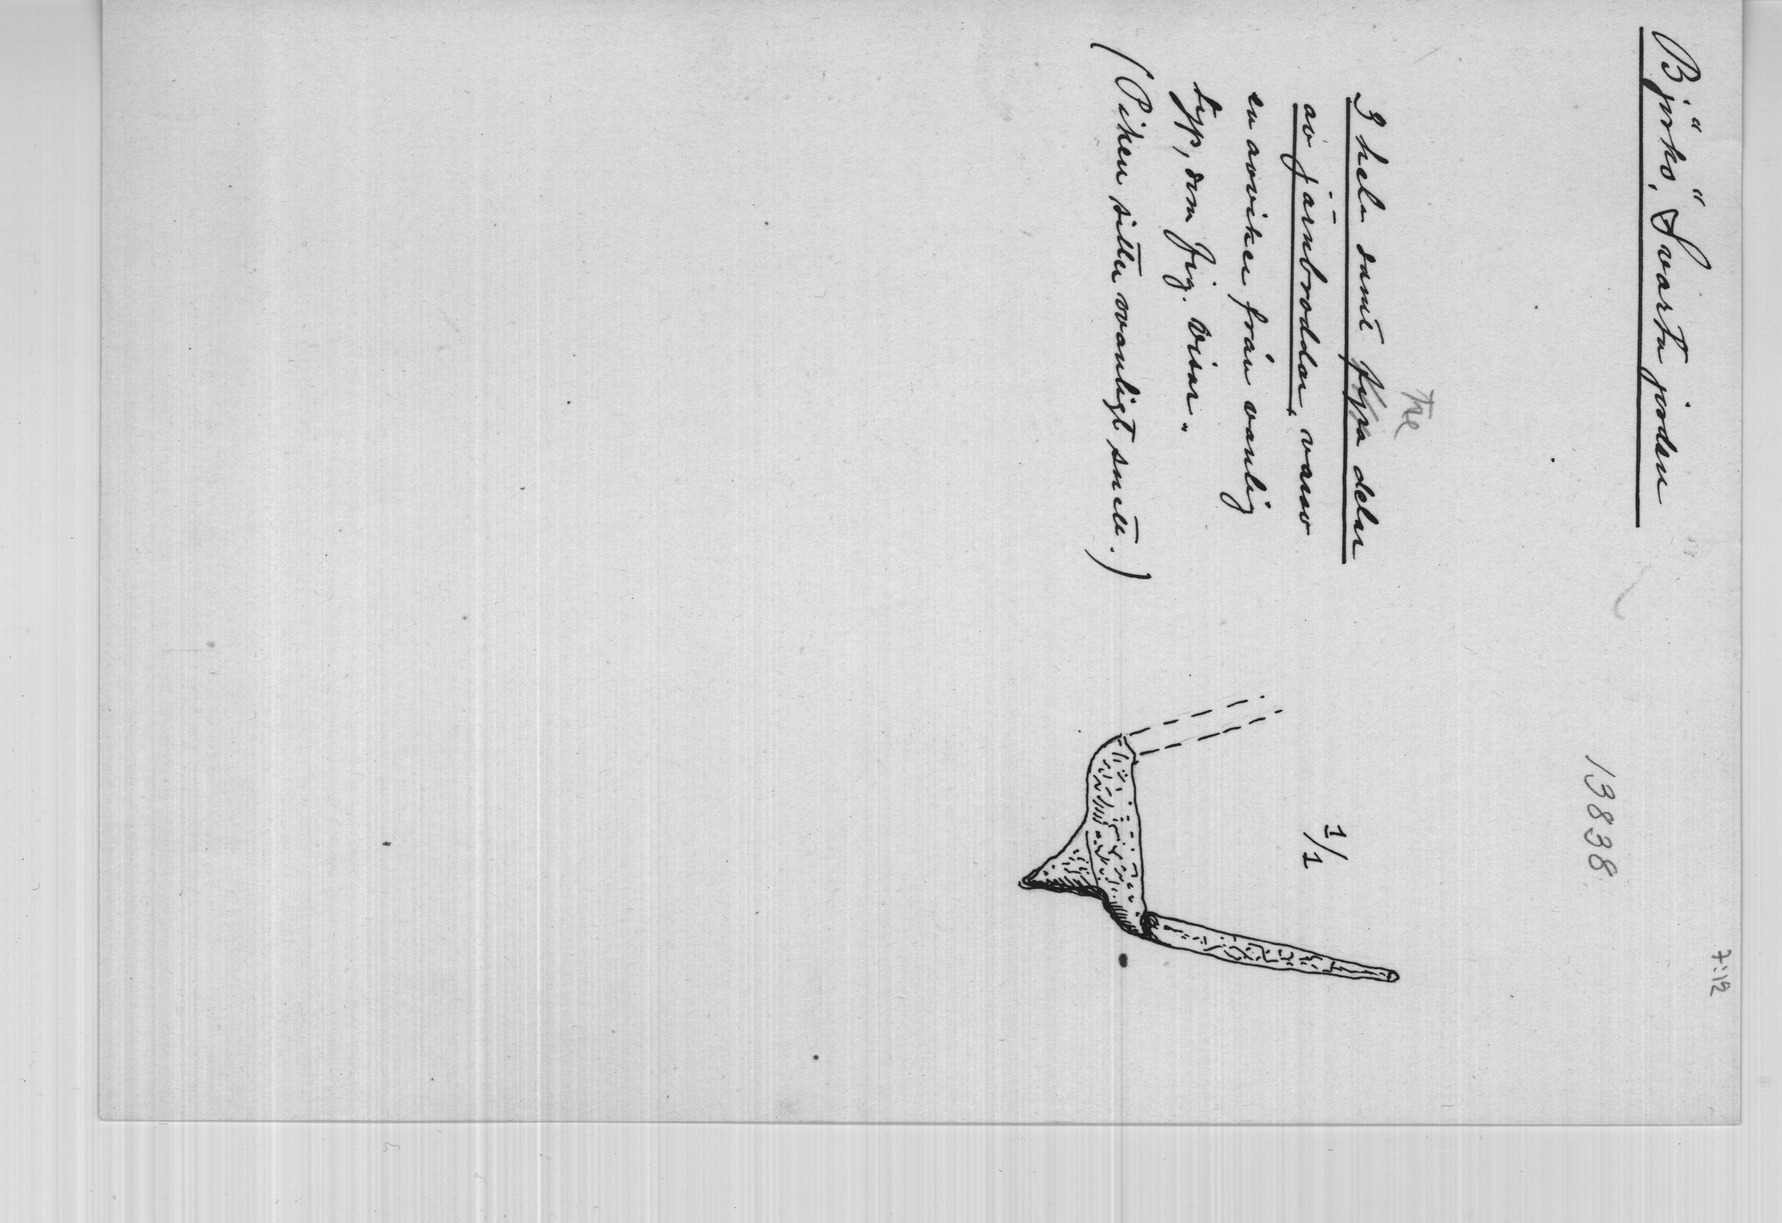 7:12
Björkö, Svarta jorden
13838.
Tre
3 hela samt fyra delar
av järnbroddar, varav
en avviker från vanlig
typ, som fig. visar.
(Piken sitter ovanligt snett.)
1/1